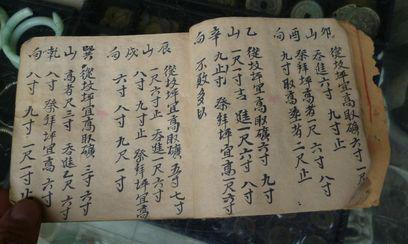 卯山酉向
從坟坪宜高取礦六寸 一尺
吞進六寸 八寸 九寸止
祭拜坪宜高者一尺 六寸 八寸
九寸取高 者二尺止
乙山辛向
從坟坪宜高取礦 六寸 九寸
一尺一寸吉 進一尺六寸 八寸
九寸止 祭拜坪宜高一尺六寸
不敢多
辰山戌向
從坟坪宜高取礦 五寸 七寸
一尺六寸 吞進一尺六寸
八寸 九寸止 祭拜坪宜高
六寸 八寸 九尺 一寸
巽山乾向
從坟坪宜高取礦 三寸 六寸
高者尺三寸 吞進乙尺 六寸
八寸 祭拜坪宜高 六寸
八寸 九寸 一尺 一寸止